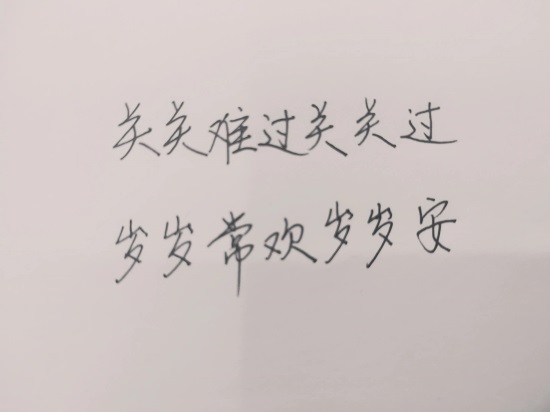 关关难过关关过
岁岁常欢岁岁安